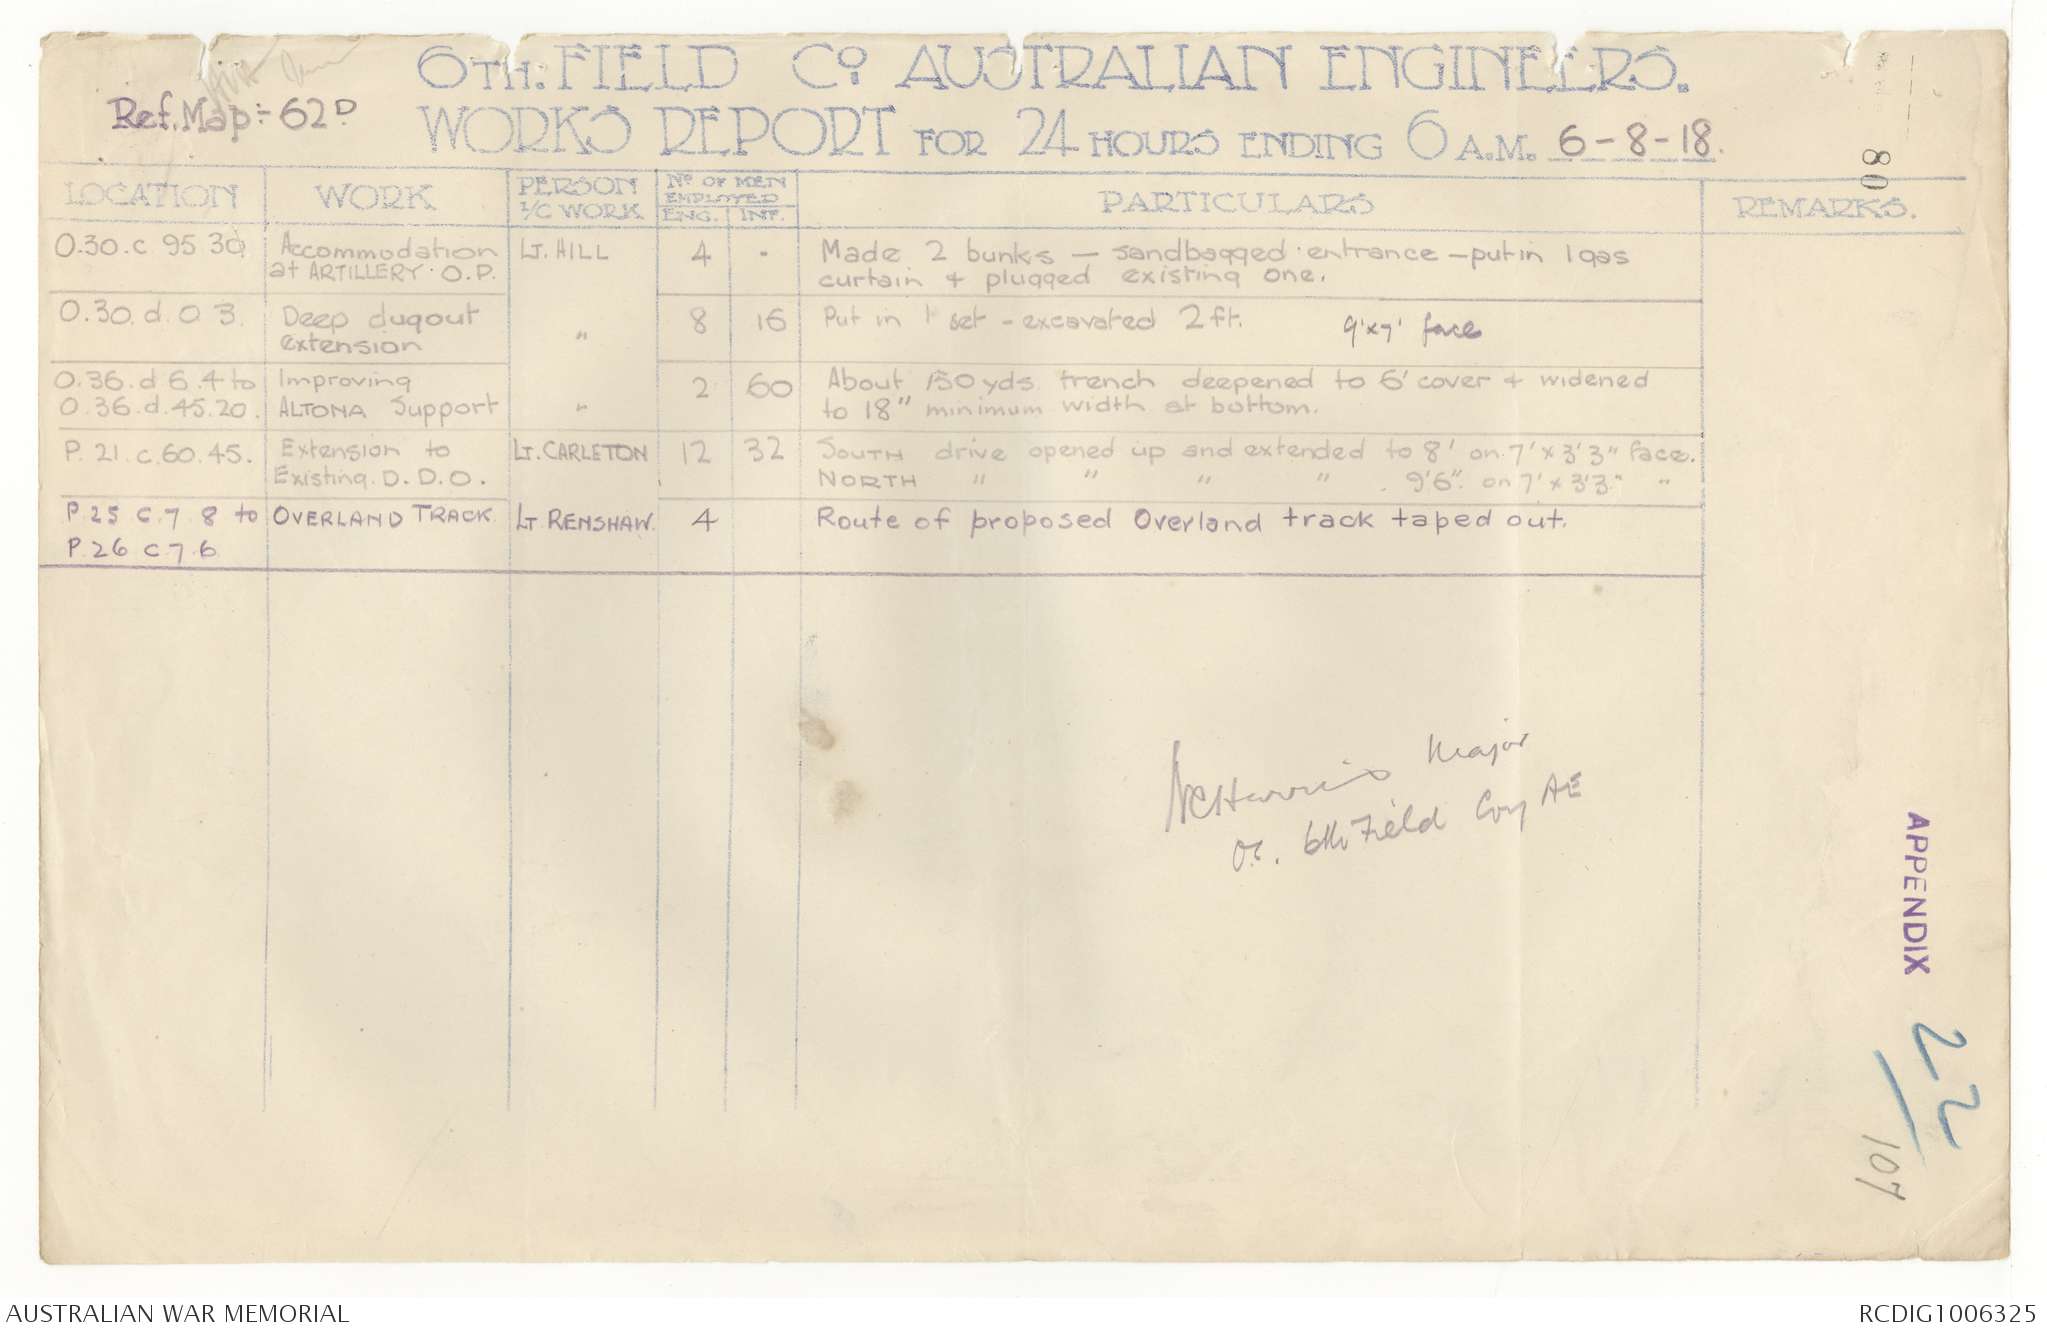 6TH. FIELD Co. AUSTRALIAN ENGINEERS.
Ref. Map:- 62D
WORKS REPORT FOR 24 HOURS ENDING 6 A.M. 6-8-18.
80
LOCATION WORK PERSON I/C WORK No OF MEN EMPLOYED ENG. INF. PARTICULARS REMARKS.
O.30.c 95 30 Accommodation LT. HILL 4 - Made 2 bunks — sandbagged entrance — put in 1 gas
at ARTILLERY O.P. curtain + plugged existing one.
O.30.d.0 3. Deep dugout " 8 16 Put in 1 set - excavated 2 ft. 9'x7' face
extension
O.36.d 6.4 to Improving " 2 60 About 150 yds trench deepened to 6' cover + widened
O.36.d.45.20. ALTONA Support to 18" minimum width at bottom.
P.21.c.60.45. Extension to LT. CARLETON 12 32 SOUTH drive opened up and extended to 8' on 7' x 3'3" face.
Existing D.D.O. NORTH " " " " 9'6" on 7' x 3'3" "
P.25 C.7 8 to OVERLAND TRACK LT RENSHAW. 4 Route of proposed Overland track taped out.
P.26 C.7.6
Harris Major
O.C. 6th Field Coy AE
APPENDIX 22
107
AUSTRALIAN WAR MEMORIAL
RCDIG1006325